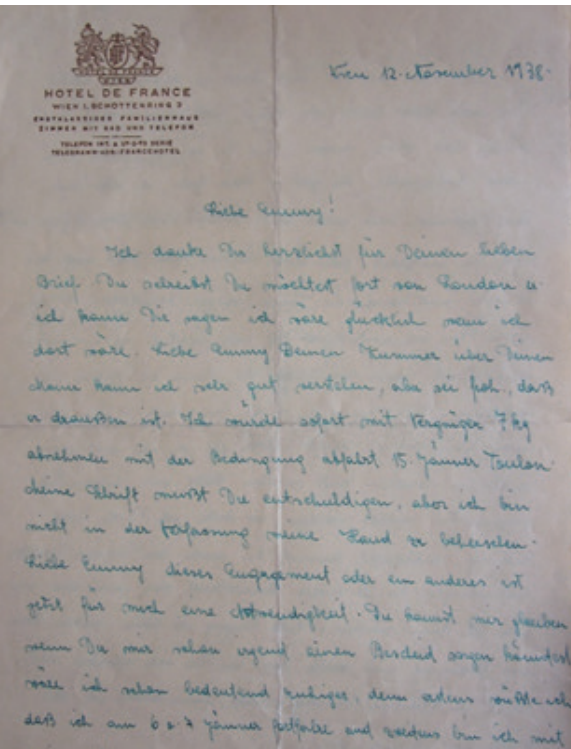 HOTEL DE FRANCE
WIEN
HOTEL DE FRANCE
WIEN I. SCHOTTENRING 3
ERSTKLASSIGES FAMILIENHAUS
ZIMMER MIT BAD UND TELEFON
TELEFON INT. A
TELEGRAMM-ADR.: FRANCEHOTEL
Wien 12. November 1938.
Liebe Emmy!
Ich danke Dir herzlichst für Deinen lieben
Brief. Du schreibst Du möchtest fort von London u.
ich kann Dir sagen ich wäre glücklich wenn ich
dort wäre. Liebe Emmy Deinen Kummer über Deinen
Mann kann ich sehr gut verstehen, aber sei froh, daß
er draußen ist. Ich würde sofort mit Vergnügen 7 kg
abnehmen mit der Bedingung abfahrt 15. Jänner Toulon.
Meine Schrift mußt Du entschuldigen, aber ich bin
nicht in der Verfassung meine Hand zu beherschen.
Liebe Emmy dieses Engagement oder ein anderes ist
jetzt für mich eine Notwendigkeit. Du kannst mir glauben
wenn Du mir schon irgend einen Bescheid sagen könntest
wäre ich schon bedeutend ruhiger, denn erstens wüßte ich
daß ich am 6 o. 7 Jänner fortfahre und zweitens bin ich mit